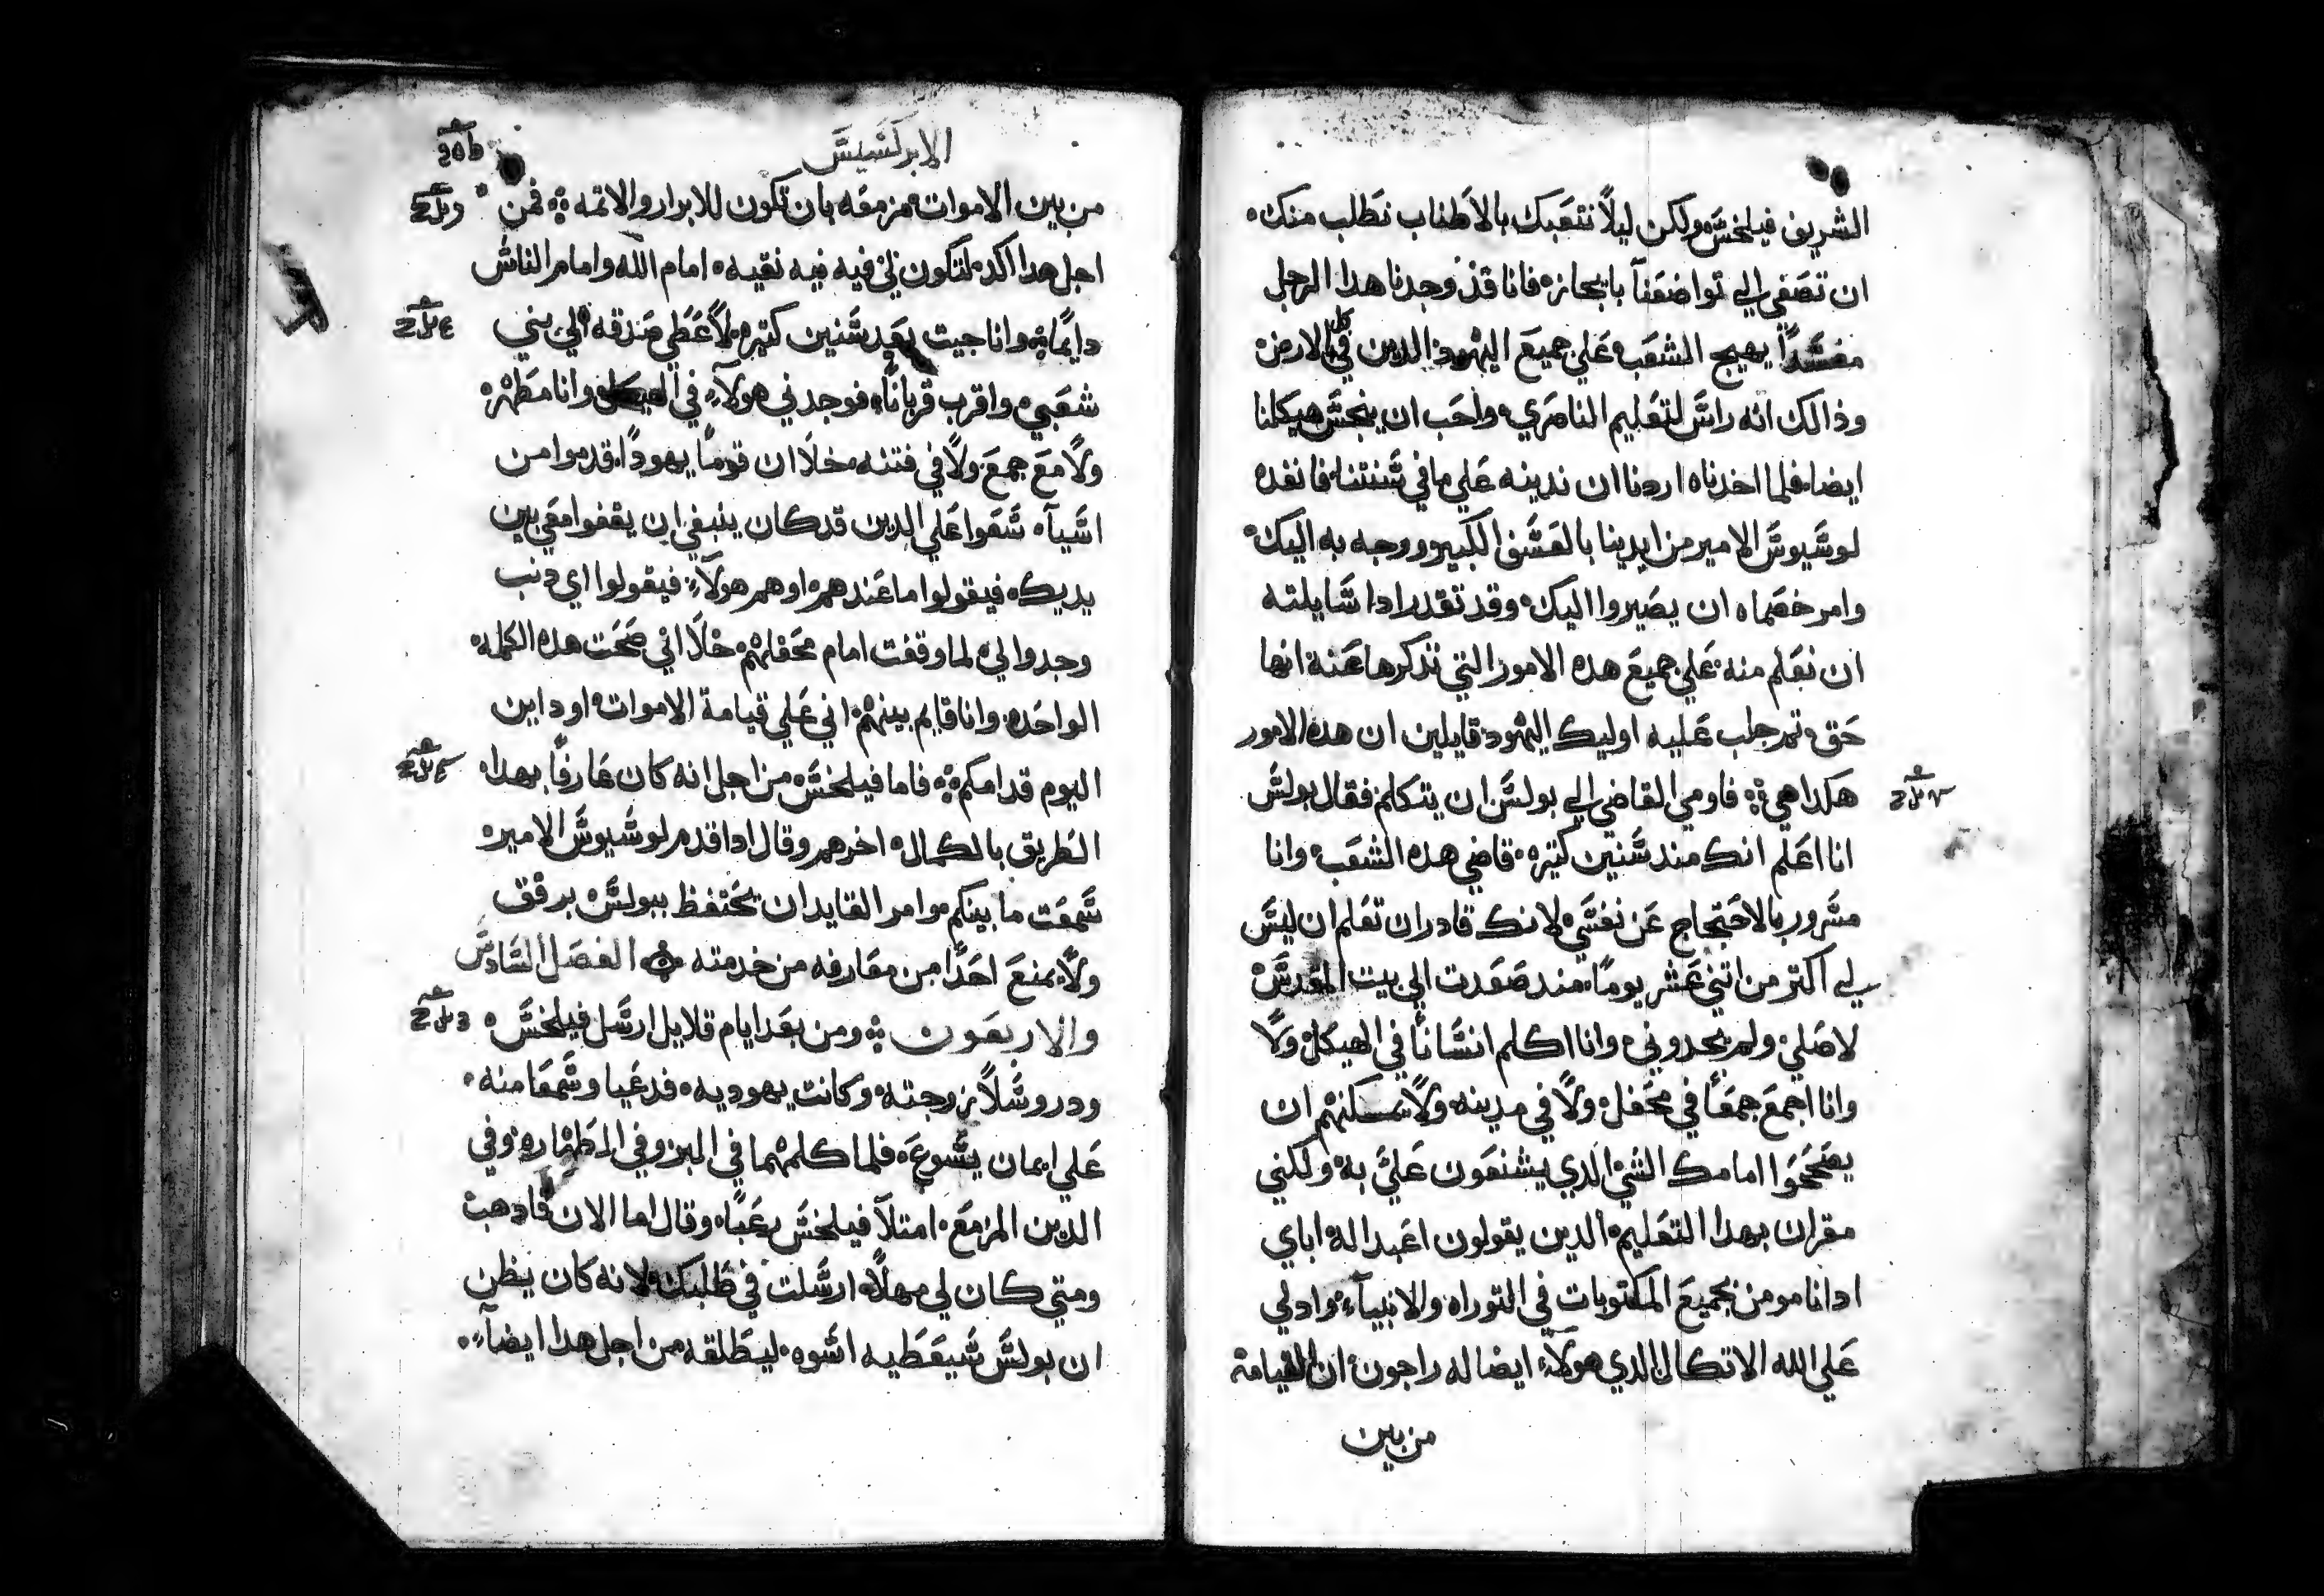 الشريف فيلخس ولكن ليلاً نتعبك بالاطناب نطلب منك
ان تصغي الي تواضعنا بايجازه فانا قد وجدنا هدا الرجل
مفسداً يهيج الشعب علي جميع اليهود الدين في كل الارض
وذالك انه راس لتعليم الناصري واحب ان ينجس هيكلنا
ايضا فلما اخدناه اردنا ان ندينه علي ما في سنتنا فانقده
لوسيوس الامير من ايدينا بالعسف الكبير ووجه به اليك
وامر خصماه ان يصيروا اليك وقد تقدر ادا سايلته
ان تعلم منه علي جميع هده الامور التي ندكرها عنه انها
حق تم جلب عليه اوليك اليهود قايلين ان هده الامور
هكدا هي فاومي القاضي الي بولس ان يتكلم فقال بولس
انا اعلم انك مند سنين كتيره قاضي هده الشعب وانا
مسرور بالاحتجاج عن نفسي لانك قادر ان تعلم ان ليس
لي اكتر من اتني عشر يوماً مند صعدت الي بيت المقدس
لاصلي ولم يجدوني وانا اكلم انساناً في الهيكل ولا
وانا اجمع جمعاً في محفل ولا في مدينه ولا يمكنهم ان
يصححوا امامك الشي الدي يشنعون علي به ولكني
مقر ان بهدا التعليم الدين يقولون اعبد اله اباي
ادانا مومن بجميع المكتوبات في التوراه والانبياء وادلي
علي الله الاتكال الدي هولاء ايضا له راجون ان القيامة
من بين
الابركسيس
من بين الاموات مزمعه بان تكون للابرار والاتمه فمن
اجل هدا اكد لتكون لي فيه نيه نقيه امام الله وامام الناس
دايماً وانا جيت بعد سنين كتيره لاعطي صدقه الي بني
شعبي واقرب قرباناً فوجدني هولاء في الهيكل وانا مطهره
ولا مع جمع ولا في فتنه خلا ان قوماً يهوداً قدموا من
اسيا شعوا علي الدين قد كان ينبغي ان يقفوا معي بين
يديك فيقولوا ما عندهم او هم هولاء فيقولوا اي دنب
وجدوا لي لما وقفت امام محفلهم خلا اني صحت هده الكلمه
الواحده وانا قايم بينهم اني علي قيامة الاموات اوداين
اليوم قدامكم فاما فيلخس من اجل انه كان عارفاً بهدا
الطريق بالكمال اخرهم وقال ادا قدم لوسيوس الامير
سمعت ما بينكم وامر القايد ان يحتفظ ببولس برفق
ولا يمنع احداً من معارفه من خدمته الفصل السادس
والاربعون ومن بعد ايام قلايل ارسل فيلخس
ودروسلا زوجته وكانت يهوديه فدعيا وسمعا منه
علي ايمان يسوع فلما كلمهما في البر وفي الطهاره وفي
الدين المزمع امتلا فيلخس رعباً وقال اما الان فادهب
ومتي كان لي مهلاً ارسلت في طلبك ولانه كان يظن
ان بولس سيعطيه اشوه ليطلقه من اجل هدا ايضاء